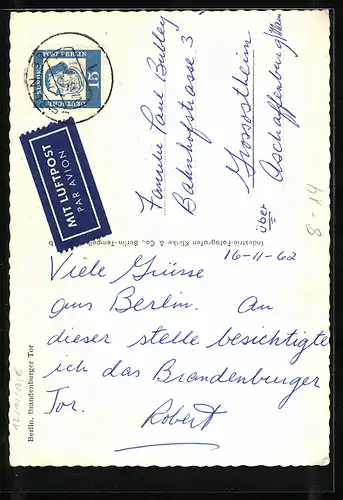 DEUTSCHE BUNDESPOST BERLIN
15
MIT LUFTPOST
PAR AVION
Familie Paul
Bahnhofstrasse 3
Grossostheim
über
Aschaffenburg/Main
8-14
Industrie-Fotografen Klinke & Co., Berlin-Tempelh
16-11-62
Viele Grüsse
aus Berlin. An
dieser stelle besichtigte
ich das Brandenburger
Tor.
Robert
Berlin, Brandenburger Tor